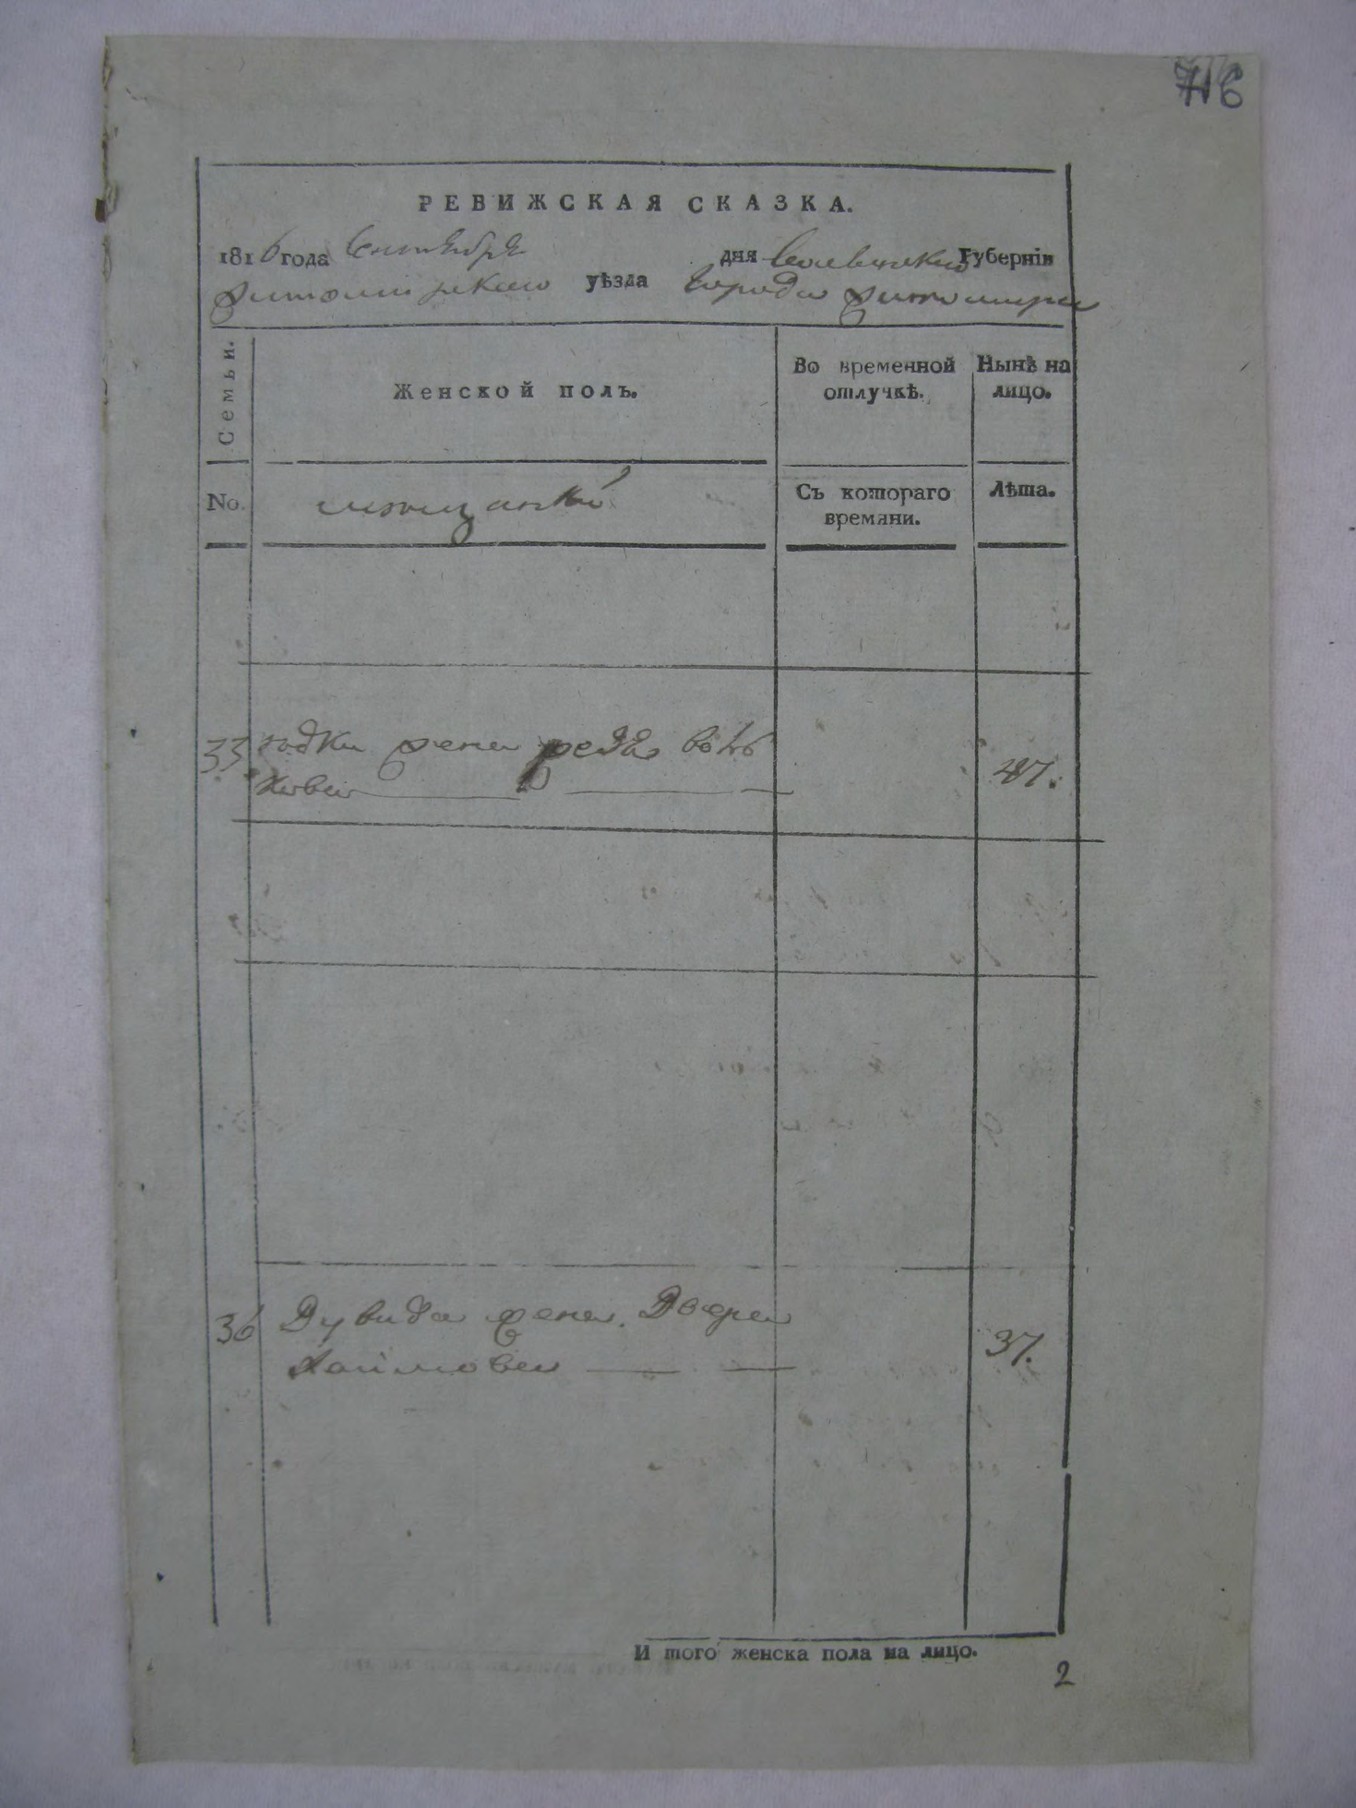 716
РЕВИЖСКАЯ СКАЗКА.
1816 года Сентября дня Волынской Губерніи
Житомирскаго уѣзда Города Житомира
Семьи. Женской полъ. Во временной отлучкѣ. Нынѣ на лицо.
No. мещанки Съ котораго времяни. Лѣта.
33 жена
37.
36 Дувида жена Двера
Хаимовна
И того женска пола на лицо.
2